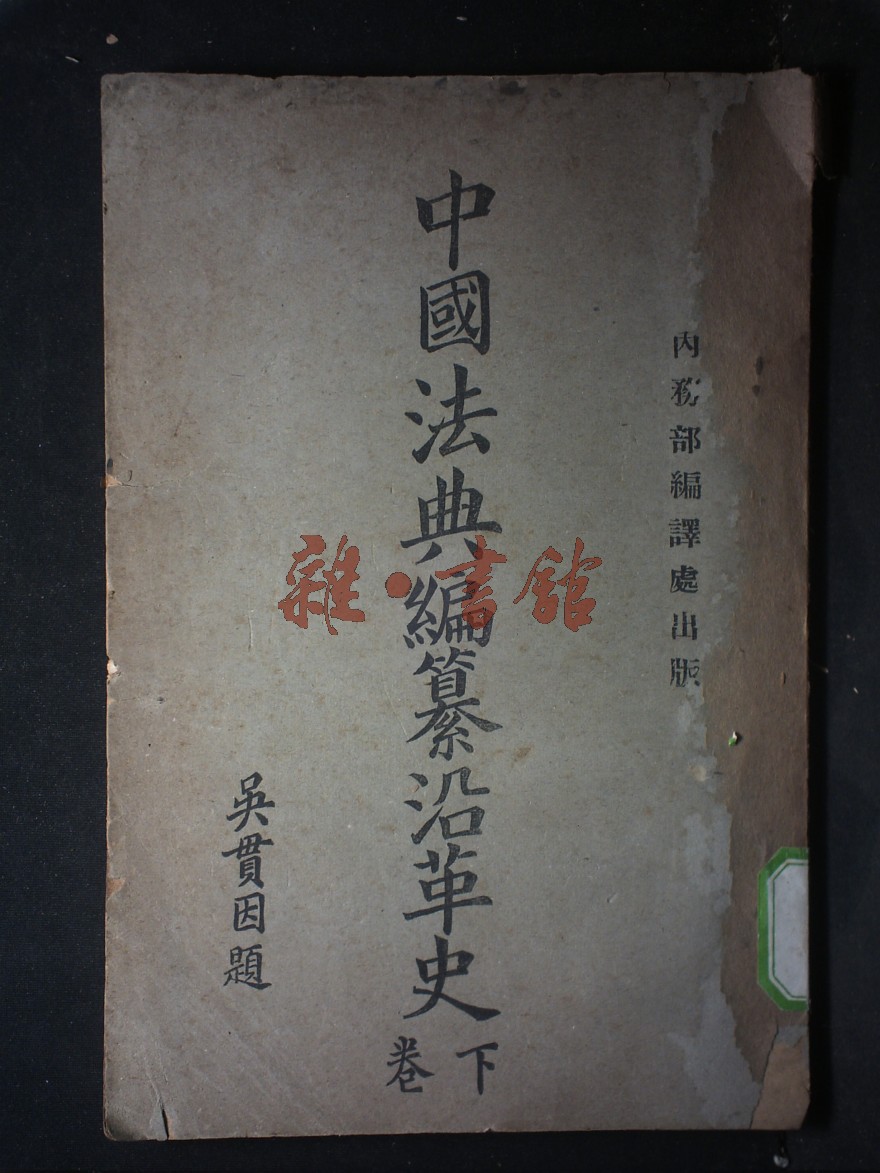 內務部編譯處出版
中國法典編纂沿革史
下卷
吳貫因題
雜·書館